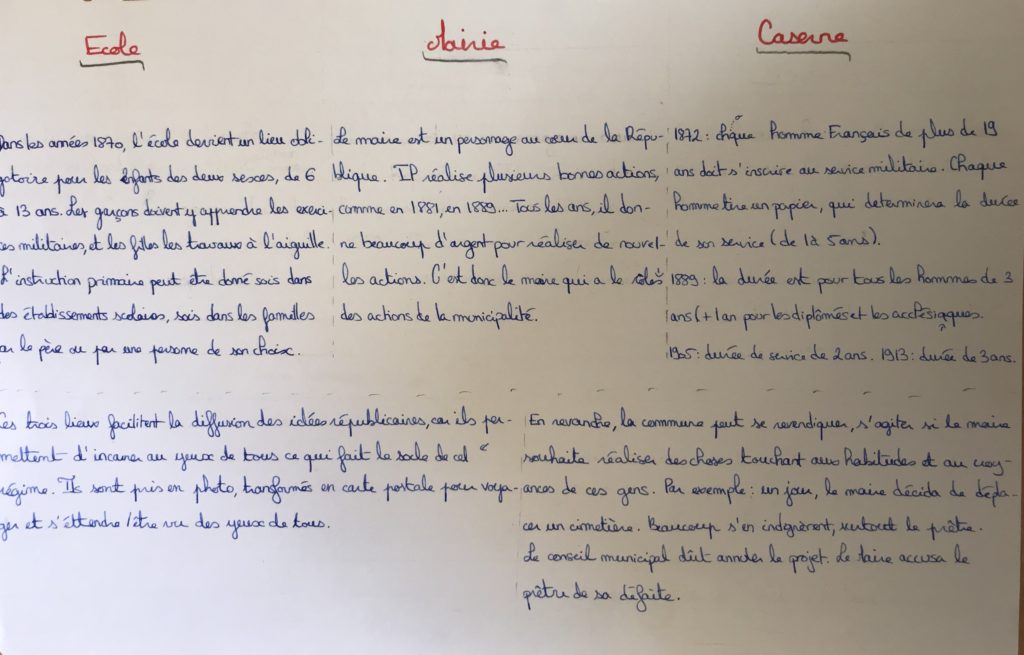 Ecole
Mairie
Caserne
Dans les années 1870, l'école devient un lieu obli-
gatoire pour les enfants des deux sexces, de 6
à 13 ans. Les garçons doivent y apprendre les exerci-
ces militaires, et les filles les travaux à l'aiguille.
L'instruction primaire peut être donné sois dans
des établissements scolaires, sois dans les familles
par le père ou par une persone de son choix.
Le maire est un personage au cœur de la Répu-
blique. Il réalise plusieurs bonnes actions,
comme en 1881, en 1889... Tous les ans, il don-
ne beaucoup d'argent pour réaliser de nouvel-
les actions. C'est donc le maire qui a le rôle
des actions de la municipalité.
1872 : chaque homme Français de plus de 19
ans doit s'inscrire au service militaire. Chaque
homme tire un papier, qui determinera la durée
de son service (de 1 à 5 ans).
1889 : la durée est pour tous les hommes de 3
ans (+ 1 an pour les diplômés et les
1905 : durée de service de 2 ans. 1913 : durée de 3 ans.
Ces trois lieux facilitent la diffusion des idées républicaires, car ils per-
mettent d'incarner au yeux de tous ce qui fait le socle de cel
régime. Ils sont pris en photo, transformés en carte postale pour voya-
ger et s'éttendre / être vu des yeux de tous.
En revanche, la commune peut se revendiquer, s'agiter si le maire
souhaite réaliser des choses touchant aux habitudes et au croy-
ances de ces gens. Par exemple : un jour, le maire décida de dépla-
cer un cimetière. Beaucoup s'en indignèrent, surtout le prêtre.
Le conseil municipal dût annuler le projet. Le Maire accusa le
prêtre de sa défaite.